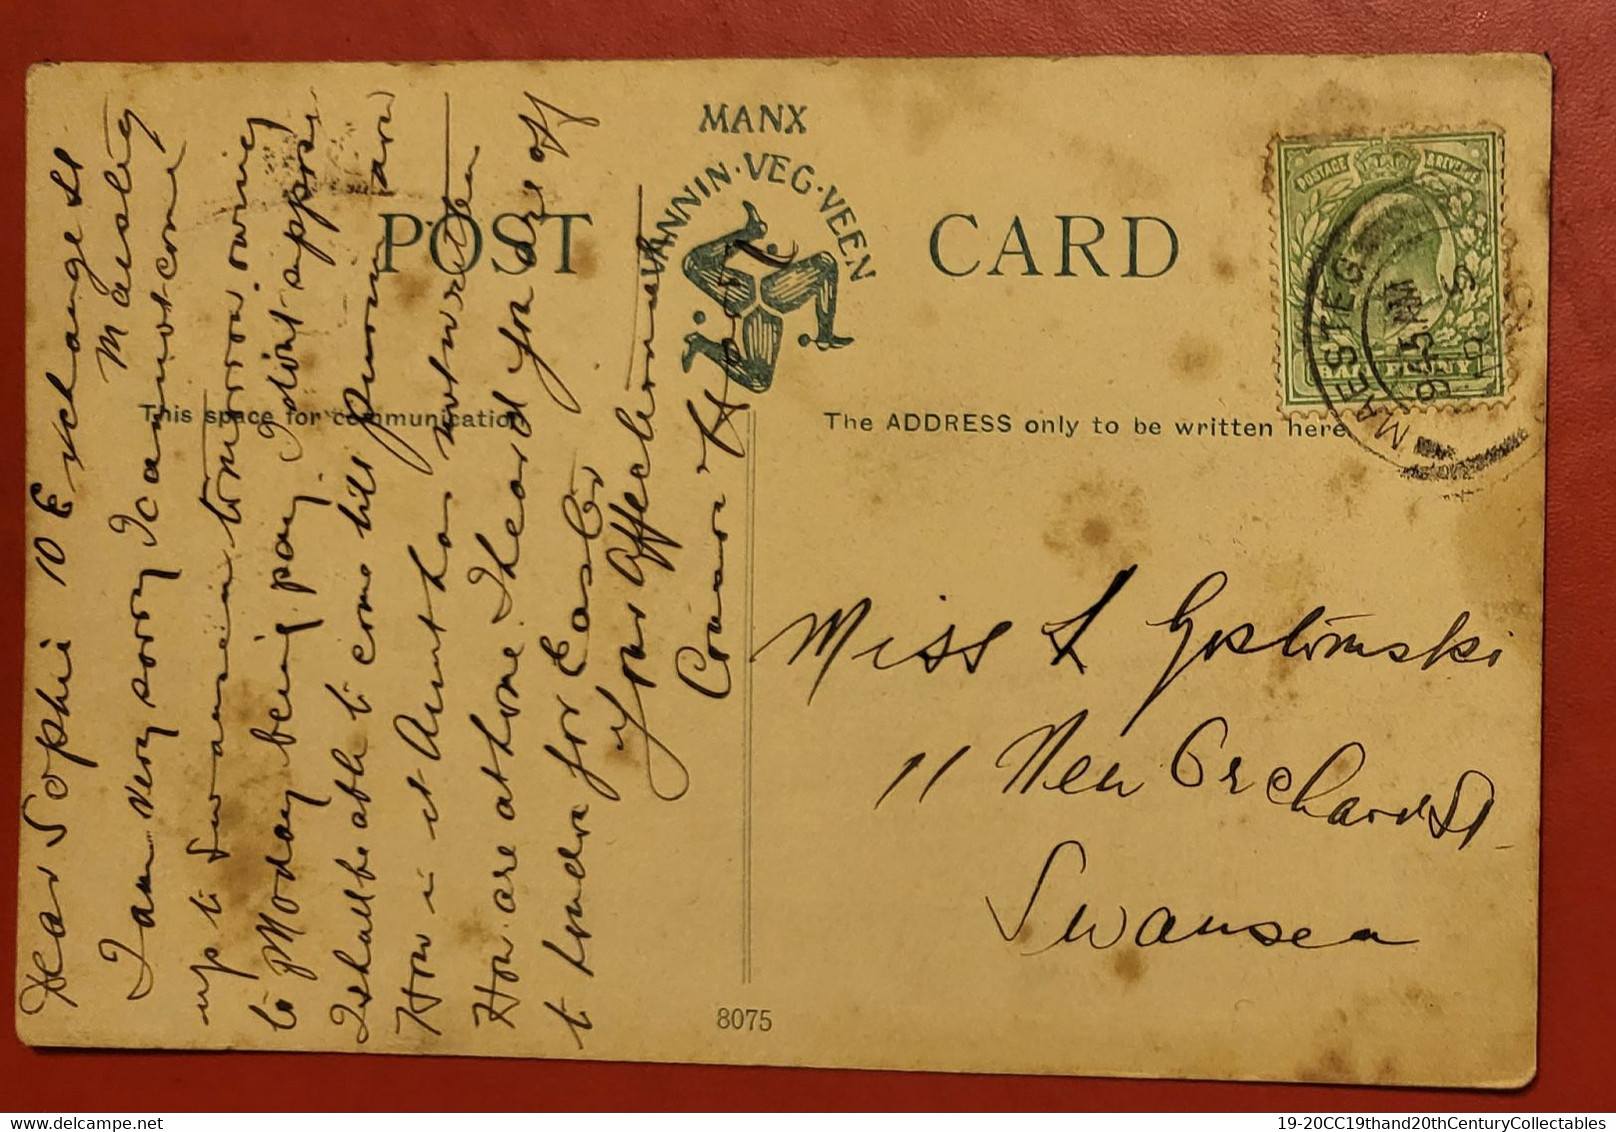 MANX
VANNIN·VEG·VEEN
POST CARD
POSTAGE & REVENUE
HALFPENNY
MAESTEG
This space for communication
The ADDRESS only to be written here
10 Exchange St
Maesteg
Dear Sophie
I am very sorry I cannot come
up to Swansea tomorrow owing
to Monday being pay I dont
I shall be able to come till
How is it Aunt has not written
How are at home I heard you are off
to London for Easter
Your Affectionate
Miss S Gostomski
11 New Orchard St
Swansea
8075
19-20CC19thand20thCenturyCollectables